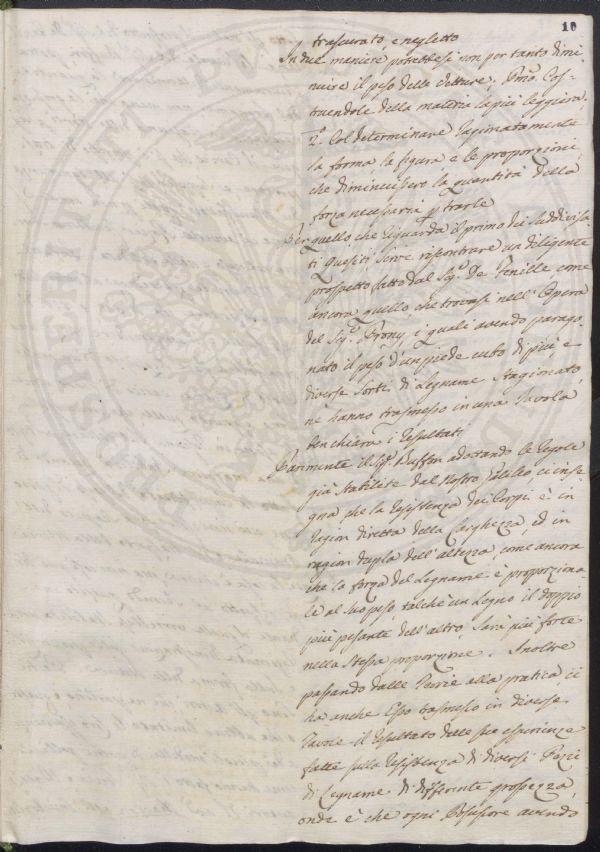 10
trascurato, e negletto
In due maniere potrebbesi non per tanto dimi-
nuire il peso delle Vetture; Prmo. Cos-
truendole della materia la più leggiera,
2.o Col determinare
la forma la figura e le proporzioni,
che diminuissero la quantità della
forza necessaria p trarle
Per quello che riguarda il primo dei suddivisa
ti Quesiti, serve riscontrare un diligente
prospetto fatto dal Sigr. De Fenille come
ancora quello che trovasi nell'Opera
del Sigr. Prony, i quali avendo parago-
nato il peso d'un piede cubo di più, e
diverse sorti di Legname stagionato,
ne hanno trasmesso in una Tavola
ben chiara i resultati
Parimente il Sigr. Buffon adottando le regole
già stabilite dal nostro Galileo, ci inse
gna, che la resistenza dei Corpi è in
ragion diretta della larghezza, ed in
ragion dupla dell'altezza, come ancora
che la forza del Legname è proporziona
le al suo peso, talchè un Legno il doppio
più pesante dell'altro, sarà più forte
nella stessa proporzione. Inoltre
passando dalle Teorie alla pratica, ci
ha anche Esso trasmesso in diverse
Tavole il resultato delle sue esperienze
fatte sulla resistenza di diversi Pezzi
di Legname di differente grossezza,
onde è che ogni Possessore avendo